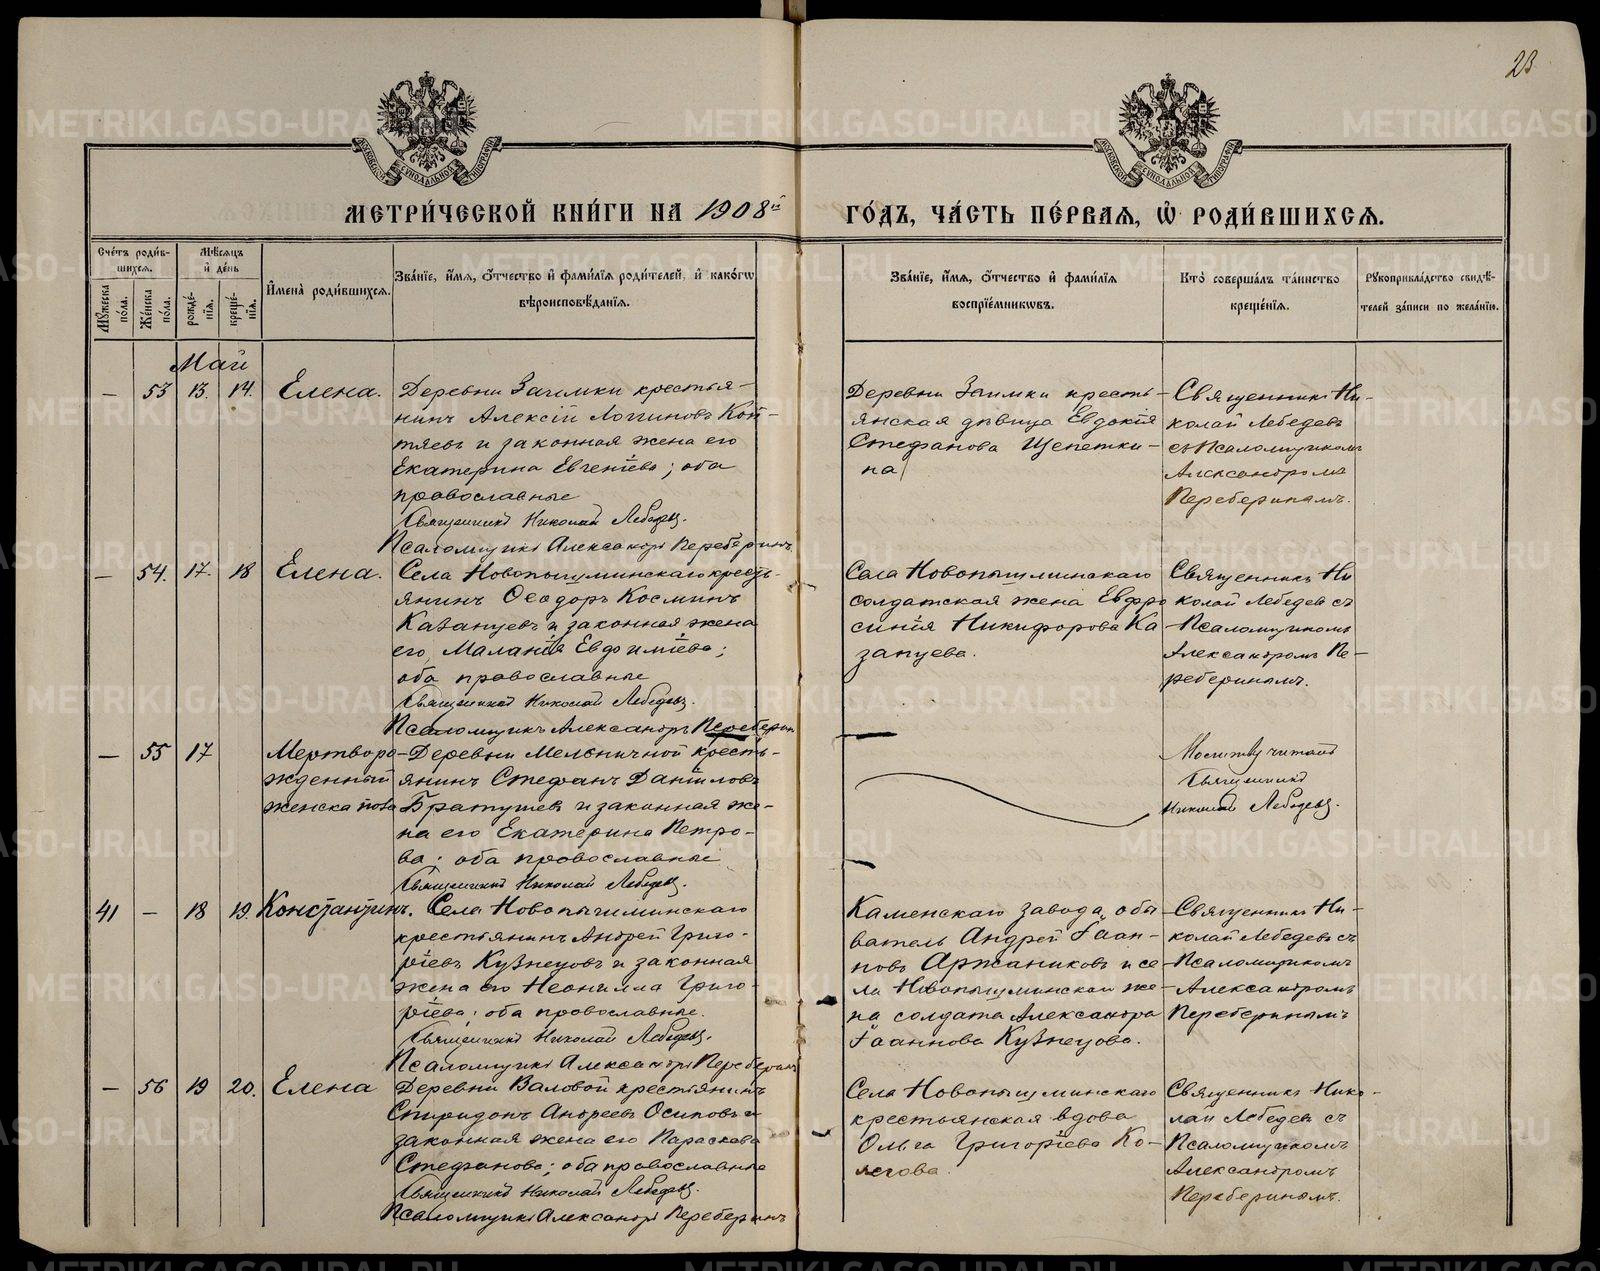 23
МОСКОВСКОЙ СѴНОДАЛЬНОЙ ТИПОГРАФІИ
МОСКОВСКОЙ СѴНОДАЛЬНОЙ ТИПОГРАФІИ
МЕТРИ́ЧЕСКОЙ КНИ́ГИ НА 1908й ГО́ДЪ, ЧА́СТЬ ПЕ́РВАЯ, Ѽ РОДИ́ВШИХСѦ.
Сче́тъ роди́в-
шихсѧ.
Мѣ́сѧцъ
и҆ де́нь
Мꙋ́жеска по́ла.
Же́нска по́ла.
рожде́-
нїѧ.
креще́-
нїѧ.
И҆мена̀ роди́вшихсѧ.
Зва́нїе, и҆́мѧ, ѻ҆́тчество и҆ фами́лїѧ роди́телей, и҆ како́гѡ
вѣроисповѣ́данїѧ.
Зва́нїе, и҆́мѧ, ѻ҆́тчество и҆ фами́лїѧ
воспрїе́мникѡвъ.
Кто̀ соверша́лъ та́инство
креще́нїѧ.
Рꙋкоприкла́дство свидѣ́-
телей за́писи по жела́нїю.
Май
— 53 13. 14. Елена.
Деревни Заимки крестья-
нинъ Алексій Логгиновъ Коп-
тяевъ и законная жена его
Екатерина Евгеніева; оба
православные
Священникъ Николай Лебедевъ.
Псаломщикъ Александръ Переберинъ
Деревни Заимки кресть-
янская дѣвица Евдокія
Стефанова Щепетки-
на
Священникъ Ни-
колай Лебедевъ
съ Псаломщикомъ
Александромъ
Переберинымъ.
— 54. 17. 18 Елена.
Села Новопышминскаго кресть-
янинъ Ѳеодоръ Косминъ
Казанцевъ и законная жена
его Маланія Евфиміева;
оба православные
Священникъ Николай Лебедевъ.
Псаломщикъ Александръ Переберин
Села Новопышминскаго
солдатская жена Евфро
синія Никифорова Ка
занцева.
Священникъ Ни
колай Лебедевъ съ
Псаломщикомъ
Александромъ Пе-
реберинымъ.
— 55 17 Мертворо-
жденный
женска пола
Деревни Мельничной кресть-
янинъ Стефанъ Даніиловъ
Братушевъ и законная же-
на его Екатерина Петро-
ва; оба православные
Священникъ Николай Лебедевъ.
Молитву читалъ
Священникъ
Николай Лебедевъ.
41 — 18 19. Константинъ.
Села Новопышминскаго
крестьянинъ Андрей Григо-
ріевъ Кузнецовъ и законная
жена его Неонилла Григо-
ріева; оба православные.
Священникъ Николай Лебедевъ.
Псаломщикъ Александръ Переберинъ
Каменскаго завода обы
ватель Андрей Іоан-
новъ Аржаниковъ и се
ла Новопышминскаго же-
на солдата Александра
Іоаннова Кузнецова.
Священникъ Ни-
колай Лебедевъ съ
Псаломщикомъ
Александромъ
Переберинымъ
— 56 19 20. Елена
Деревни Валовой крестьянинъ
Спиридонъ Андреевъ Осиповъ и
законная жена его Параскева
Стефанова; оба православные
Священникъ Николай Лебедевъ.
Псаломщикъ Александръ Переберинъ
Села Новопышминскаго
крестьянская вдова
Ольга Григоріева Ко-
легова.
Священникъ Нико-
лай Лебедевъ съ
Псаломщикомъ
Александромъ
Переберинымъ.
METRIKI.GASO-URAL.RU